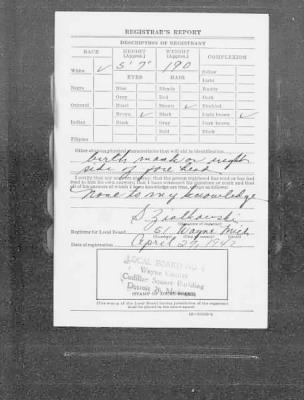 REGISTRAR'S REPORT
DESCRIPTION OF REGISTRANT
RACE HEIGHT (Approx.) WEIGHT (Approx.) COMPLEXION
White ✓ 5' 7" 190 Sallow
EYES HAIR Light
Negro Blue Blonde Ruddy
Gray Red Dark
Oriental Hazel Brown ✓ Freckled
Brown ✓ Black Light brown ✓
Indian Black Gray Dark brown
Bald Black
Filipino
Other obvious physical characteristics that will aid in identification
birth mark on right
side of fore head
I certify that my answers are true; that the person registered has read or has had
read to him his own answers; that I have witnessed his signature or mark and that
all of his answers of which I have knowledge are true, except as follows:
None to my knowledge
S. Ziolkowski
Registrar for Local Board Wayne Mich
Date of registration April 27, 1942
LOCAL BOARD NO.
Wayne County
Cadillac Square Building
Detroit, Michigan
STAMP OF LOCAL BOARD
(The stamp of the Local Board having jurisdiction of the registrant
shall be placed in the above space)